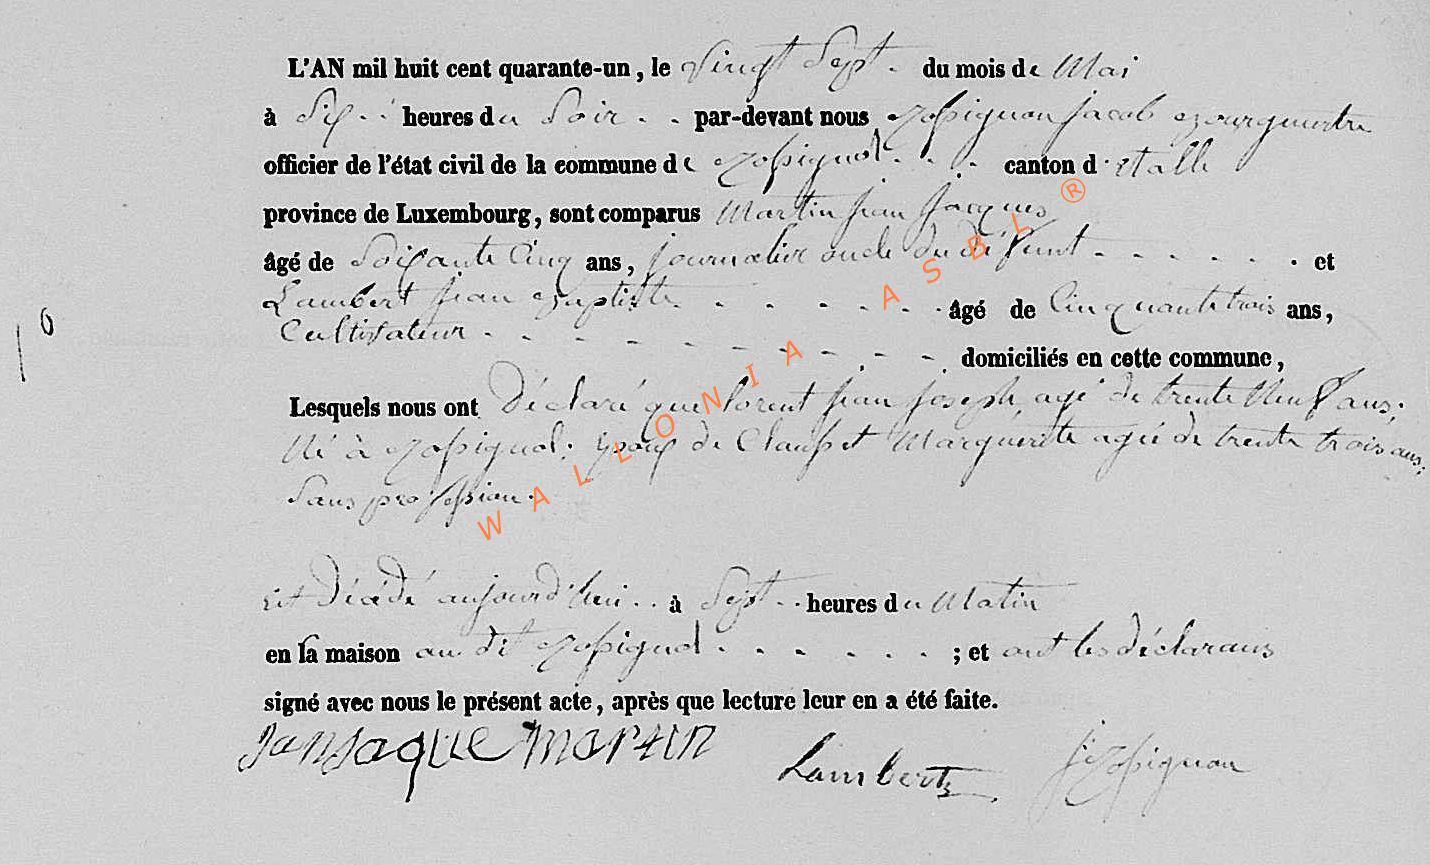 L'AN mil huit cent quarante-un, le vingt Sept. du mois de Mai
à Six . . heures du Soir . . par-devant nous Rossignon jacob Bourguestre
officier de l'état civil de la commune de Rossignol . . . canton d'etalle
province de Luxembourg, sont comparus Martin jean jacques
âgé de Soixante Cinq ans, journalier oncle du défunt - - - - - - . et
Lambert jean Baptiste - - - - - - âgé de Cinquante trois ans,
Cultivateur - - - - - - - - - - domiciliés en cette commune,
10
Lesquels nous ont Déclaré que lorent jean joseph agé de trente Neuf ans;
Né à Rossignol. Epoux de Clausset Marguerite agée de trente trois ans;
Sans profession.
Est Décédé aujourd'hui . . à Sept . . heures du Matin
en la maison au dit Rossignol - - - - - - ; et ont les déclarans
signé avec nous le présent acte, après que lecture leur en a été faite.
Jan Jaque martin
Lambert
j Rossignon
WALLONIA ASBL ®